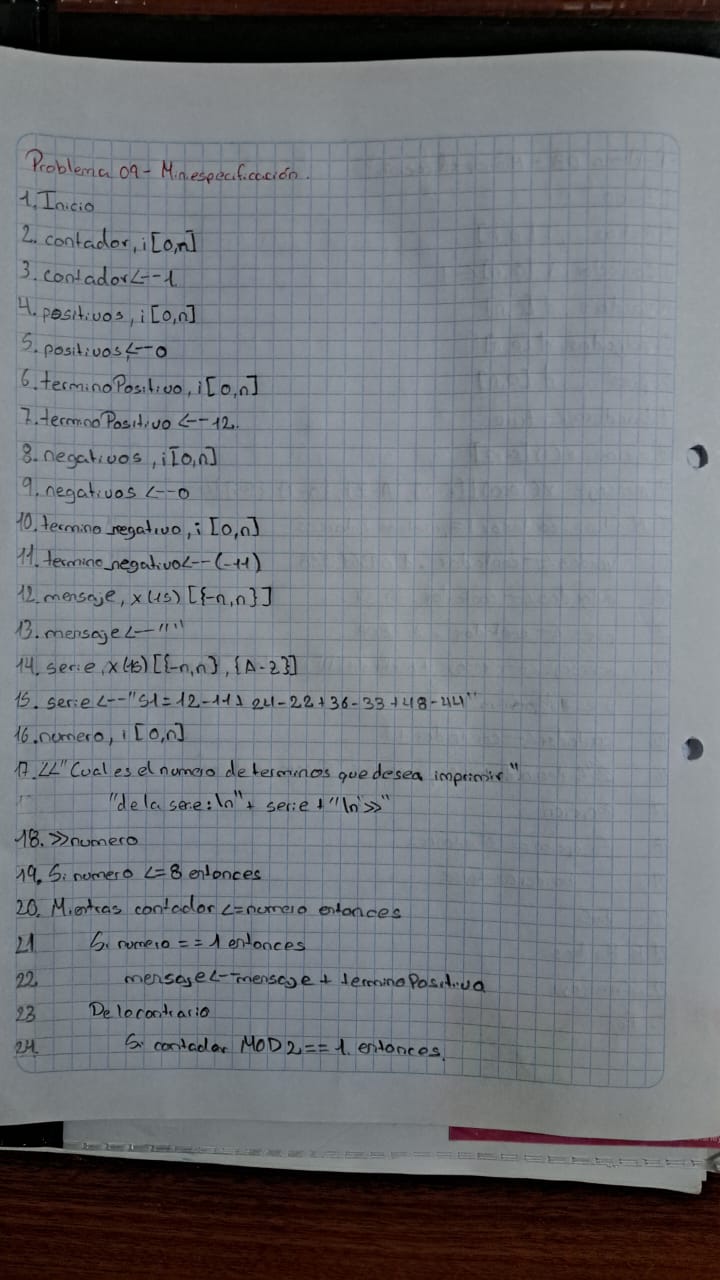 Problema 09 - Miniespecificación.
1. Inicio
2. contador, i [0,n]
3. contador<--1
4. positivos, i [0,n]
5. positivos<--0
6. terminoPositivo, i [0,n]
7. terminoPositivo <--12.
8. negativos, i [0,n]
9. negativos <--0
10. termino_negativo, i [0,n]
11. termino_negativo<--(-11)
12. mensaje, x(15) [{-n,n}]
13. mensaje <--""
14. serie, x(45) [{-n,n}, {A-Z}]
15. serie <--"S1=12-11+24-22+36-33+48-44"
16. numero, i [0,n]
17. <<"Cual es el numero de terminos que desea imprimir"
"de la serie: \n"+ serie + "\n>>"
18. >>numero
19. Si numero <=8 entonces
20. Mientras contador <=numero entonces
21 Si numero == 1 entonces
22 mensaje<--mensaje + terminoPositivo
23 De lo contrario
24. Si contador MOD 2 == 1. entonces.